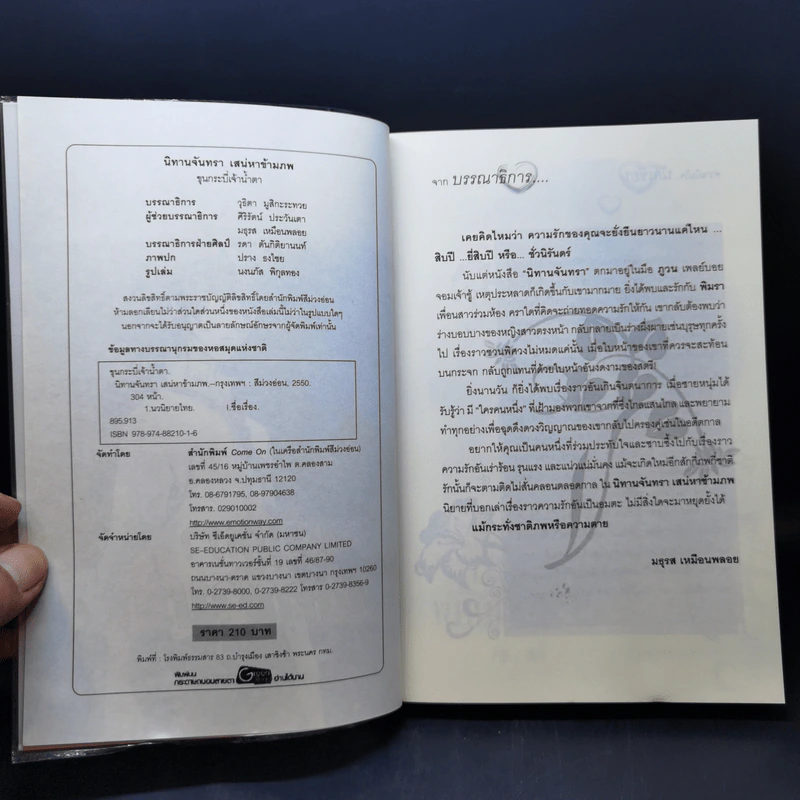 นิทานจันทรา เสน่หาข้ามภพ
ขุนกระบี่เจ้าน้ำตา
บรรณาธิการ วุธิตา มูสิกะระทวย
ผู้ช่วยบรรณาธิการ ศิริรัตน์ ประวันเตา
มธุรส เหมือนพลอย
บรรณาธิการฝ่ายศิลป์ รตา ตันกิติยานนท์
ภาพปก ปราง ธงไชย
รูปเล่ม นงนภัส พิกุลทอง
สงวนลิขสิทธิ์ตามพระราชบัญญัติลิขสิทธิ์โดยสำนักพิมพ์สีม่วงอ่อน
ห้ามลอกเลียนไม่ว่าส่วนใดส่วนหนึ่งของหนังสือเล่มนี้ไม่ว่าในรูปแบบใดๆ
นอกจากจะได้รับอนุญาตเป็นลายลักษณ์อักษรจากผู้จัดพิมพ์เท่านั้น
ข้อมูลทางบรรณานุกรมของหอสมุดแห่งชาติ
ขุนกระบี่เจ้าน้ำตา.
นิทานจันทรา เสน่หาข้ามภพ.--กรุงเทพฯ : สีม่วงอ่อน, 2550.
304 หน้า.
1.นวนิยายไทย. I.ชื่อเรื่อง.
895.913
ISBN 978-974-88210-1-6
จัดทำโดย สำนักพิมพ์ Come On (ในเครือสำนักพิมพ์สีม่วงอ่อน)
เลขที่ 45/16 หมู่บ้านเพชรอำไพ ต.คลองสาม
อ.คลองหลวง จ.ปทุมธานี 12120
โทร. 08-6791795, 08-97904638
โทรสาร. 029010002
http://www.emotionway.com
จัดจำหน่ายโดย บริษัท ซีเอ็ดยูเคชั่น จำกัด (มหาชน)
SE-EDUCATION PUBLIC COMPANY LIMITED
อาคารเนชั่นทาวเวอร์ชั้นที่ 19 เลขที่ 46/87-90
ถนนบางนา-ตราด แขวงบางนา เขตบางนา กรุงเทพฯ 10260
โทร. 0-2739-8000, 0-2739-8222 โทรสาร 0-2739-8356-9
http://www.se-ed.com
ราคา 210 บาท
พิมพ์ที่ : โรงพิมพ์ธรรมสาร 63 ถ.บำรุงเมือง เสาชิงช้า พระนคร กทม.
พิมพ์บน
กระดาษถนอมสายตา Green อ่านได้นาน
จาก บรรณาธิการ....
เคยคิดไหมว่า ความรักของคุณจะยั่งยืนยาวนานแค่ไหน ...
สิบปี ...ยี่สิบปี หรือ... ชั่วนิรันดร์
นับแต่หนังสือ "นิทานจันทรา" ตกมาอยู่ในมือ ภูวน เพลย์บอย
จอมเจ้าชู้ เหตุประหลาดก็เกิดขึ้นกับเขามากมาย ยิ่งได้พบและรักกับ พิมรา
เพื่อนสาวร่วมห้อง คราใดที่คิดจะถ่ายทอดความรักให้กัน เขากลับต้องพบว่า
ร่างบอบบางของหญิงสาวตรงหน้า กลับกลายเป็นร่างผึ่งผายเช่นบุรุษทุกครั้ง
ไป เรื่องราวชวนพิศวงไม่หมดแค่นั้น เมื่อใบหน้าของเขาที่ควรจะสะท้อน
บนกระจก กลับถูกแทนที่ด้วยใบหน้าอันงดงามของสตรี!
ยิ่งนานวัน ก็ยิ่งได้พบเรื่องราวอันเกินจินตนาการ เมื่อชายหนุ่มได้
รับรู้ว่า มี "ใครคนหนึ่ง" ที่เฝ้ามองพวกเขาจากที่ซึ่งไกลแสนไกล และพยายาม
ทำทุกอย่างเพื่อฉุดดึงดวงวิญญาณของเขากลับไปครองคู่เช่นในอดีตกาล
อยากให้คุณเป็นคนหนึ่งที่ร่วมประทับใจและซาบซึ้งไปกับเรื่องราว
ความรักอันเร่าร้อน รุนแรง และแน่วแน่มั่นคง แม้จะเกิดใหม่อีกสักกี่ภพกี่ชาติ
รักนั้นก็จะตามติดไม่สั่นคลอนตลอดกาล ใน นิทานจันทรา เสน่หาข้ามภพ
นิยายที่บอกเล่าเรื่องราวความรักอันเป็นอมตะ ไม่มีสิ่งใดจะมาหยุดยั้งได้
แม้กระทั่งชาติภพหรือความตาย
มธุรส เหมือนพลอย